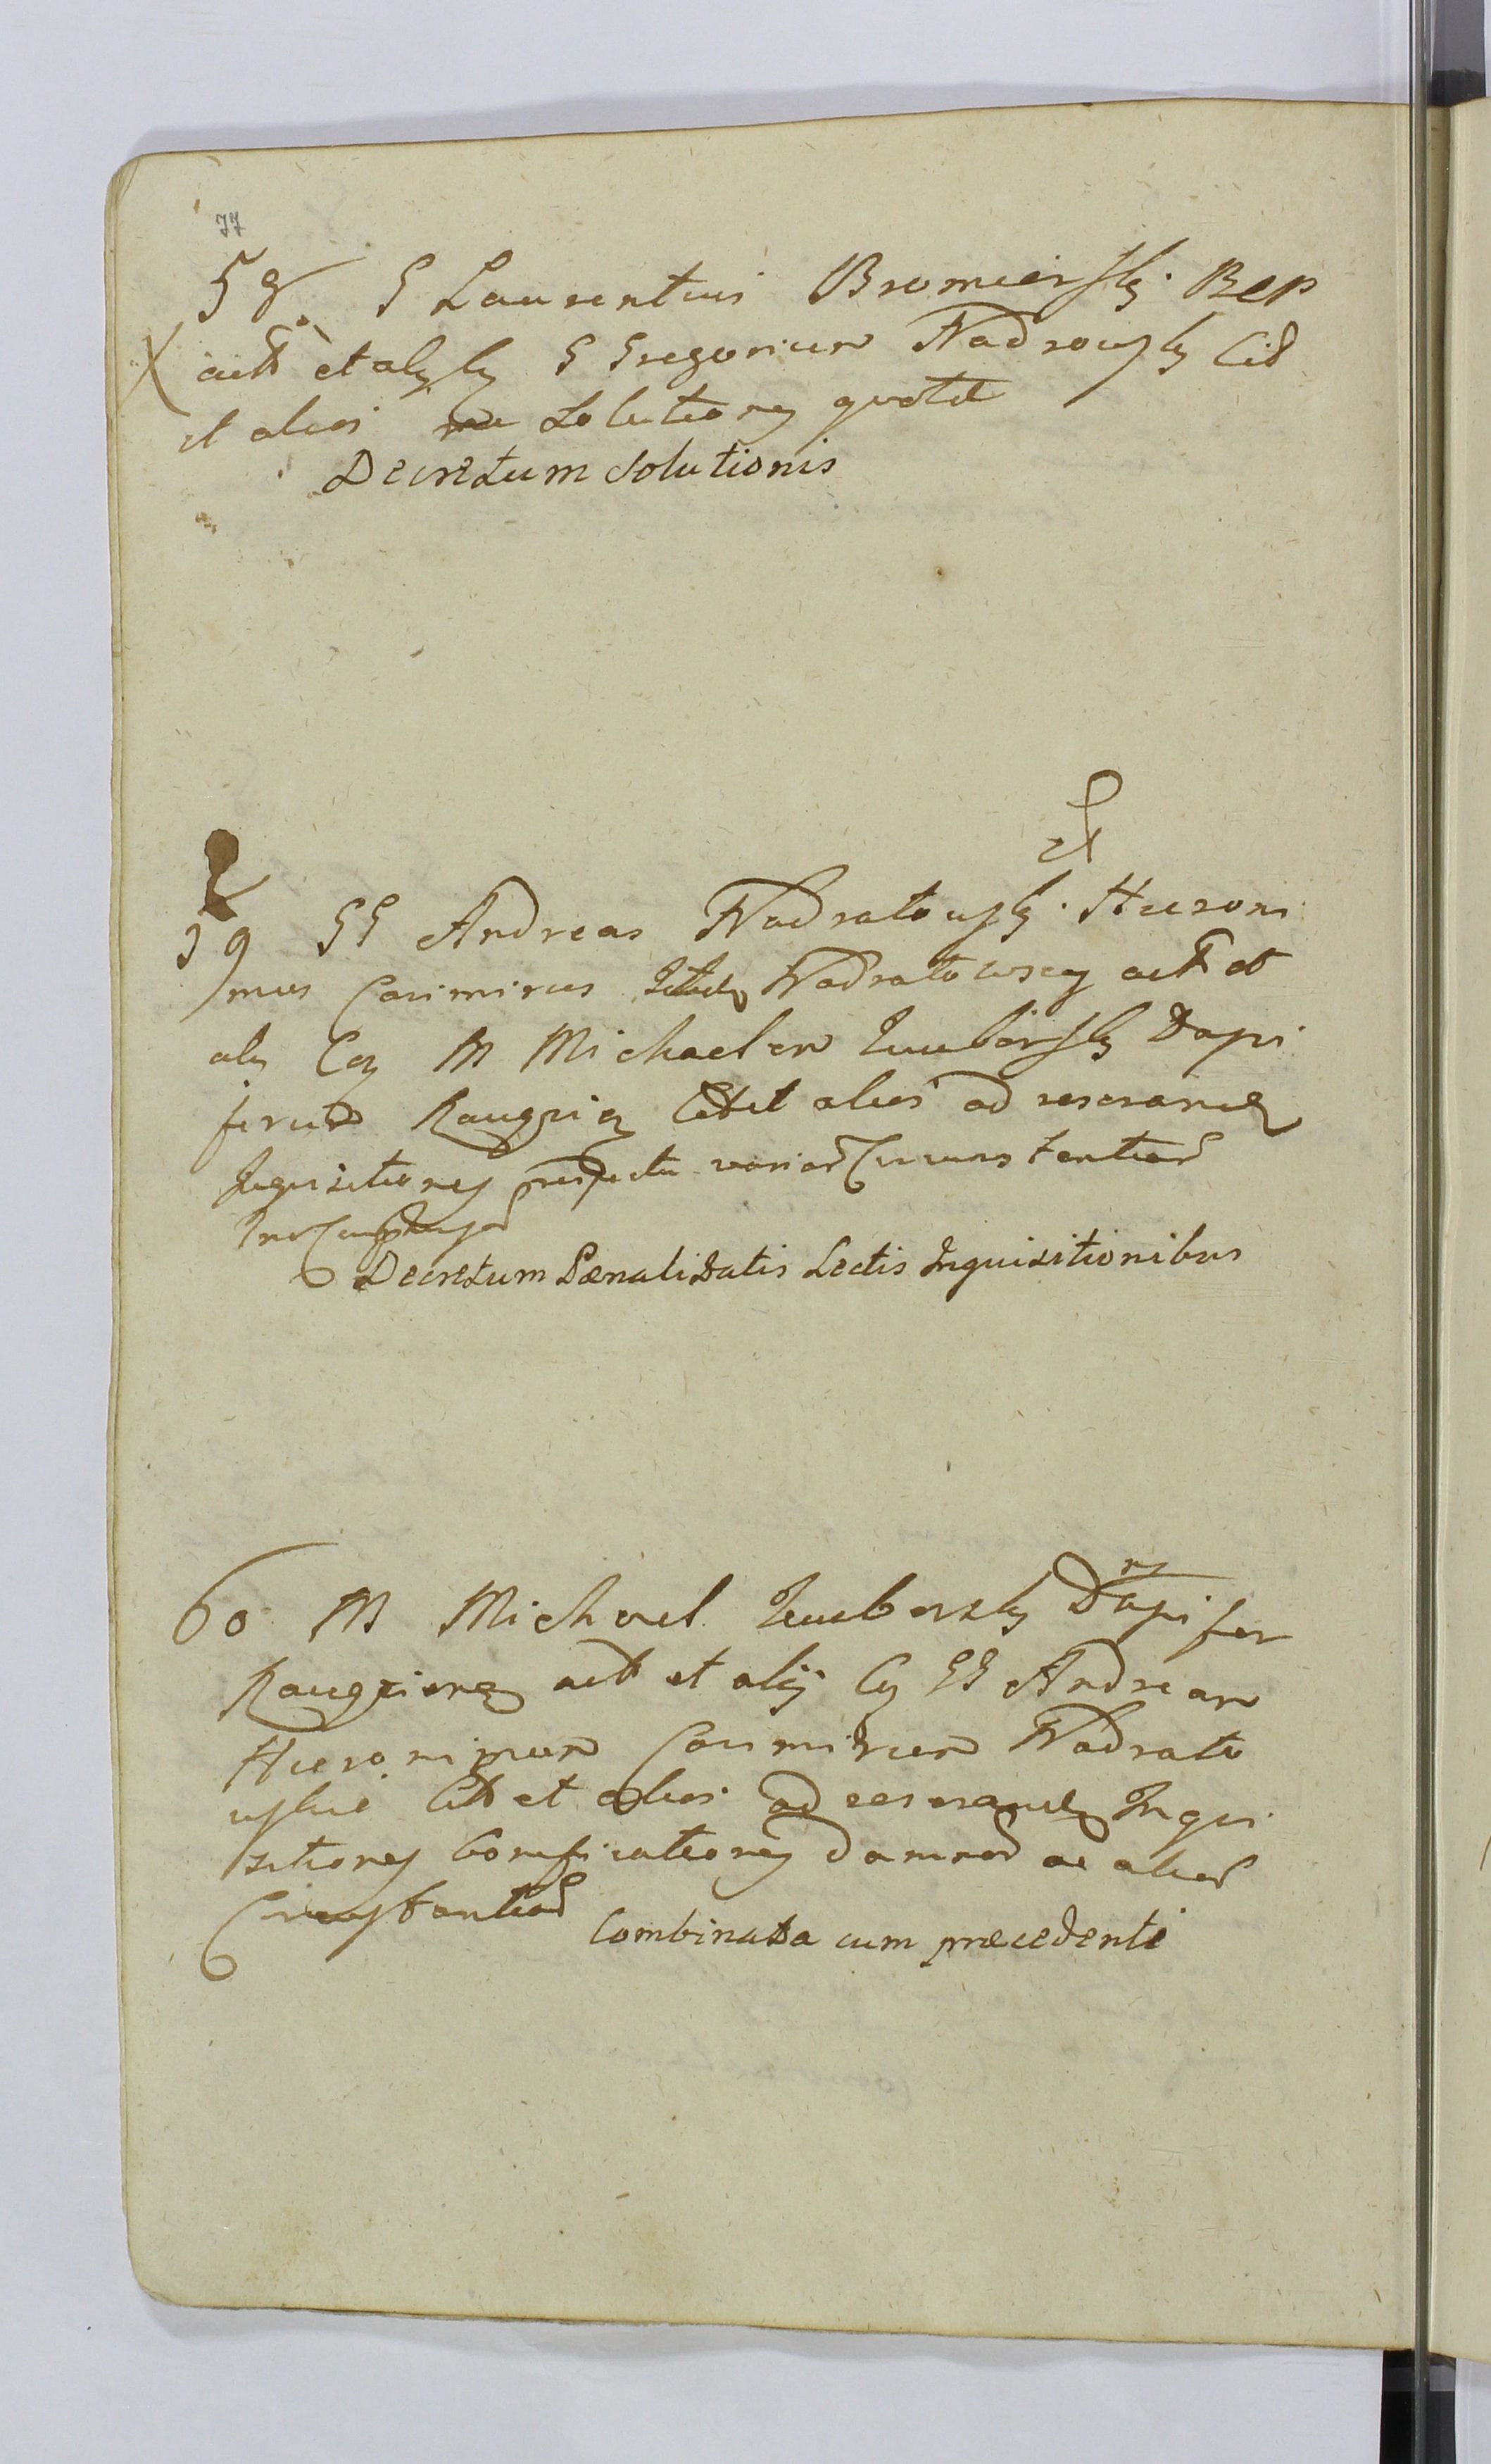 77
58 G Laurentius Bromiersky Bep
X act et aly Cy G Gregorium Nadrowsky Cit
et alios solutionis
Decretum Solutionis
et
59 GG Andreas Nadratowsky Hieroni
mus Casimirus Nadratowscy act et
aly Cy M Michaelem Zuuborsky Dapi
ferum Raygzien Citt et alios ad reserandu
Inquisitiones respectu variar Circumstantiar
Decretum Pœnalitatis Lectis Inquisitionibus
60 M Michael Zuuborsky Dapifer
Raygzien act et alij Cy GG Andream
Hieronimum Casimirum Nadrato
wskie Citt et alios ad reserandu Inqui
sitiones Bonificationis damnor ac alior
Circumstantiar Combinata cum præcedenti